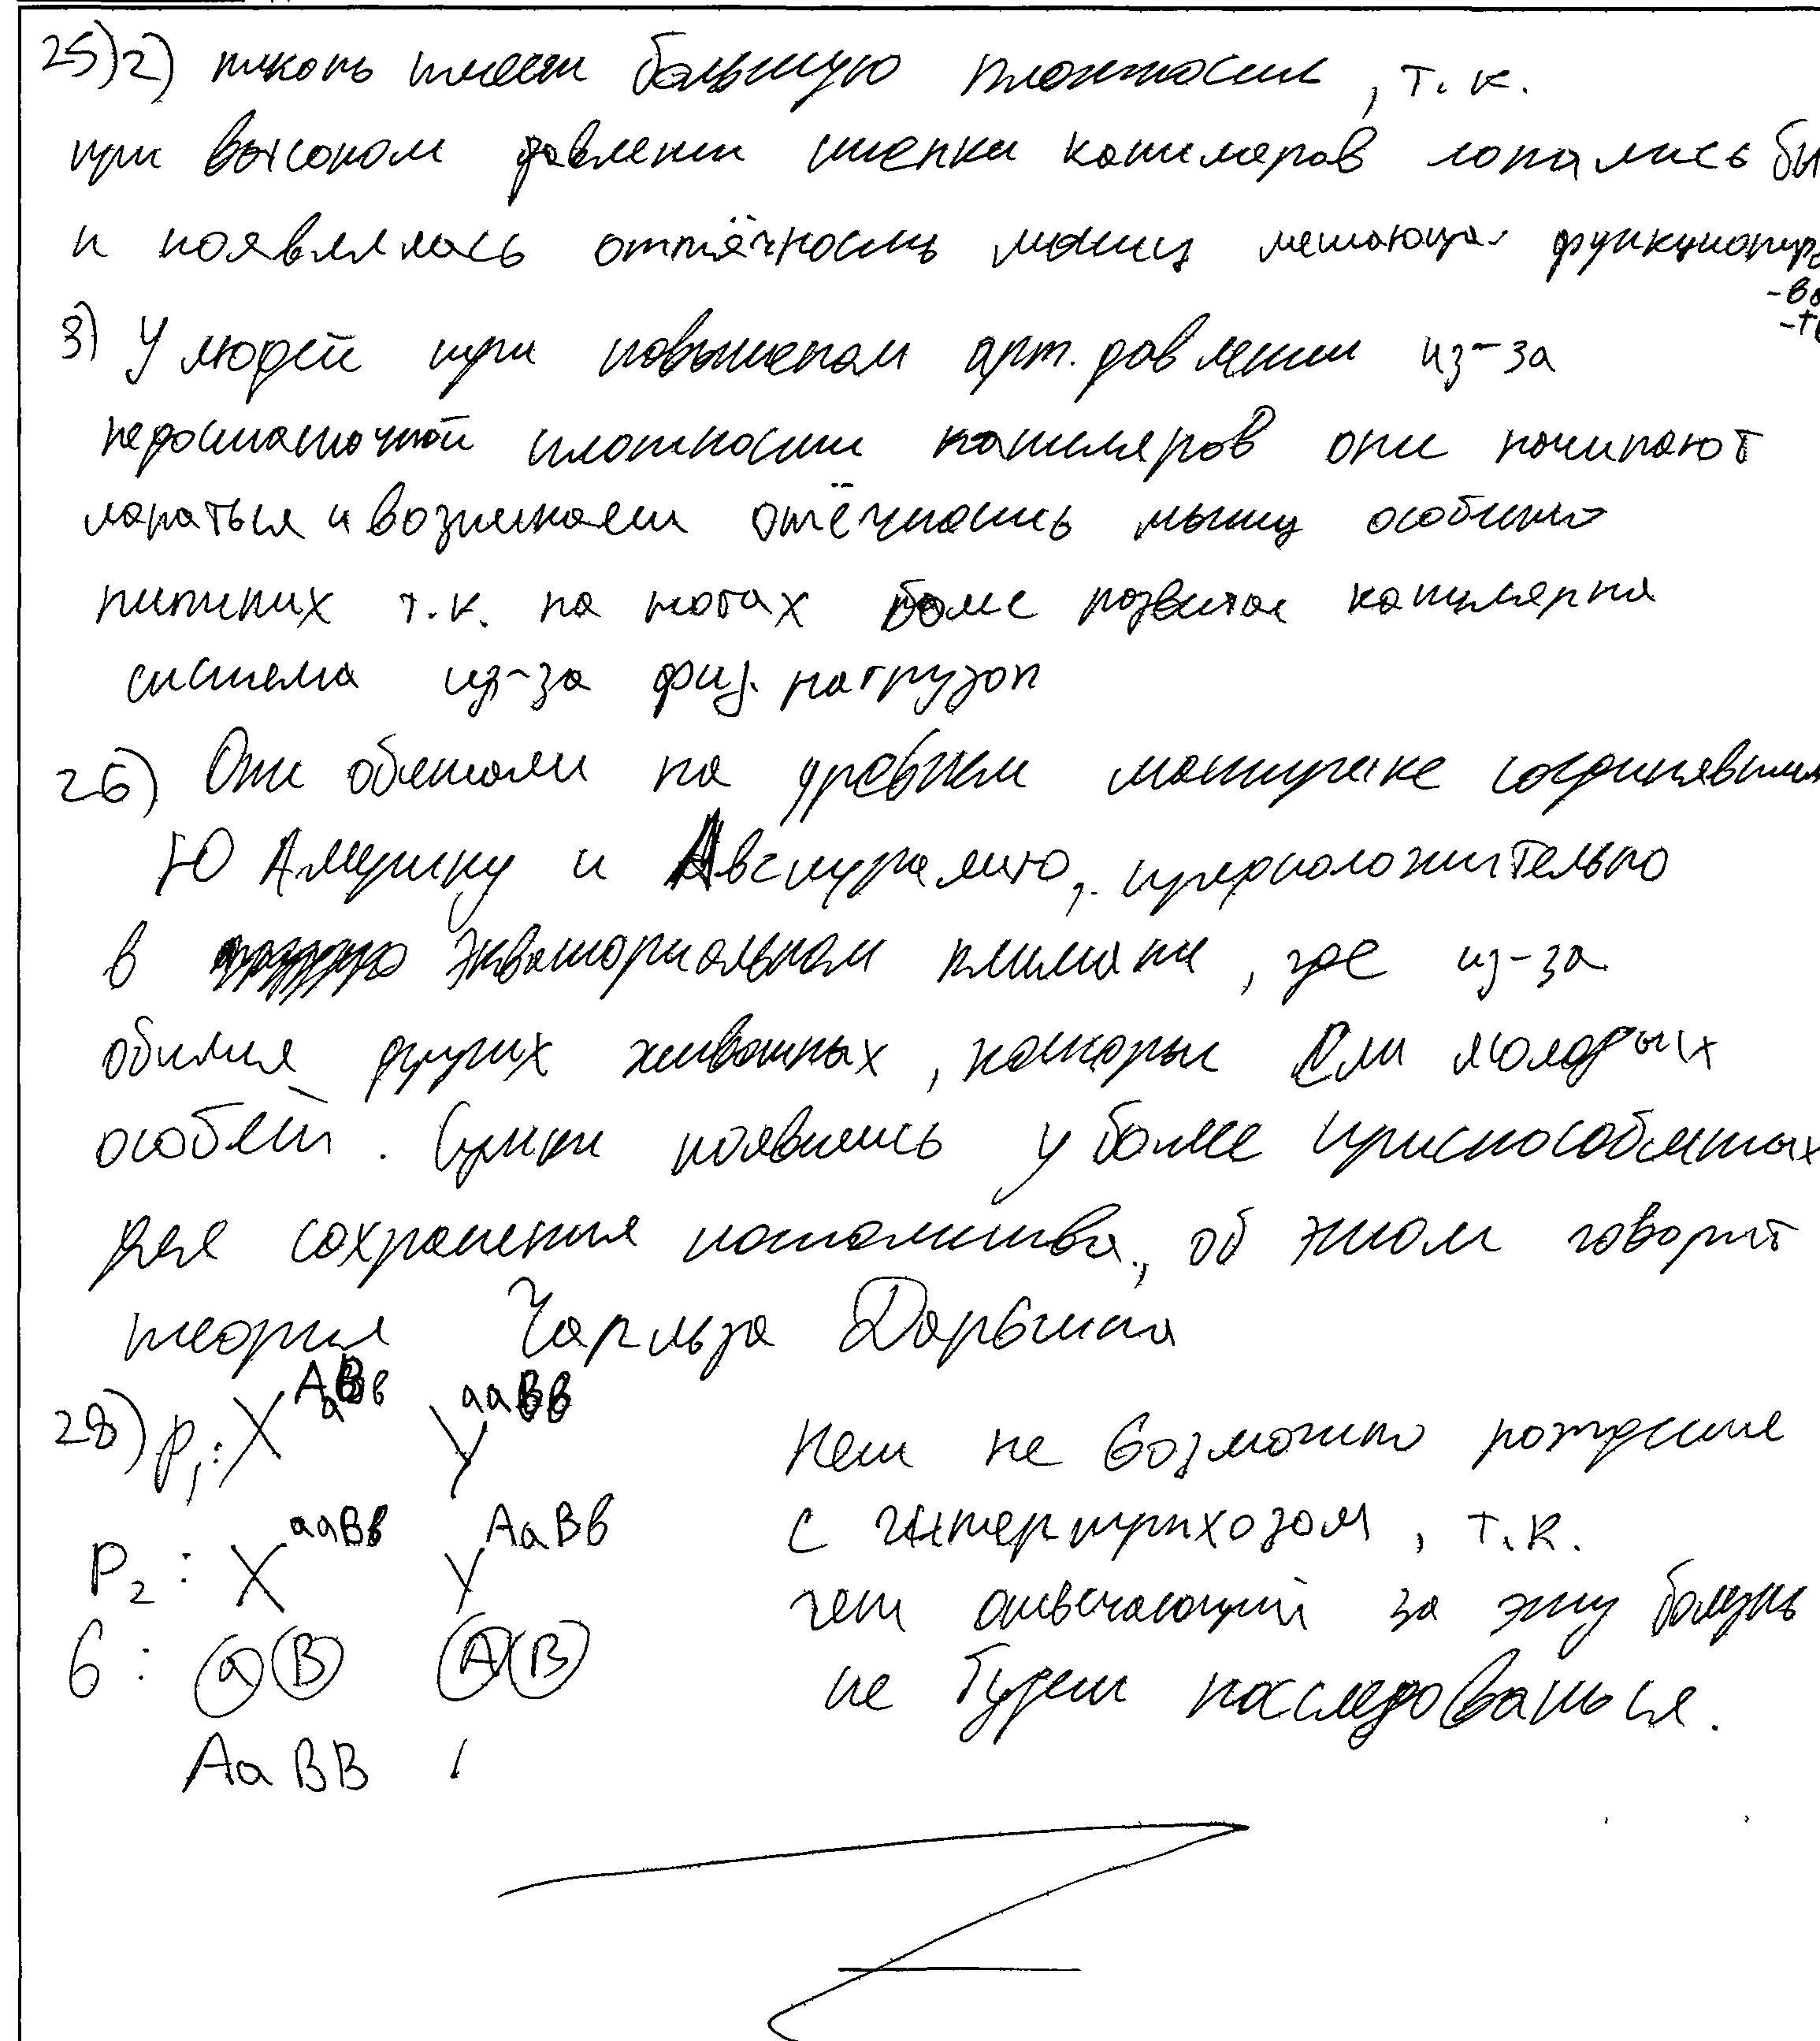 25) 2) ткань имеет большую плотность, т.к.
при высоком давлении стенки капиляров лопались бы
и появлялась оттёчность мышц мешающая функциониро
-ва
3) У людей при повышеном арт. давлении из-за
недостаточной плотности капиляров они начинают
лопаться и возникает отёчность мышц особино
нижних т.к. на ногах боле развитая капилярная
система из-за физ. нагрузок
26) Они обитали на древнем материке соединявшим
Ю Америку и Австралию, предположительно
в экваториальном климате, где из-за
обилия других животных, которые ели молодых
особей. Сумки появились у более приспособленых
для сохранения потомства, об этом говорит
теория Чарльза Дарвина
28) P₁: X^AaBb Y^aaBB
Нет не возможно рождение
P₂: X^aaBb Y^AaBb
с гипертрихозом, т.к.
ген отвечающий за эту болезнь
G: (a)(B) (A)(B)
не будет наследоваться.
AaBB